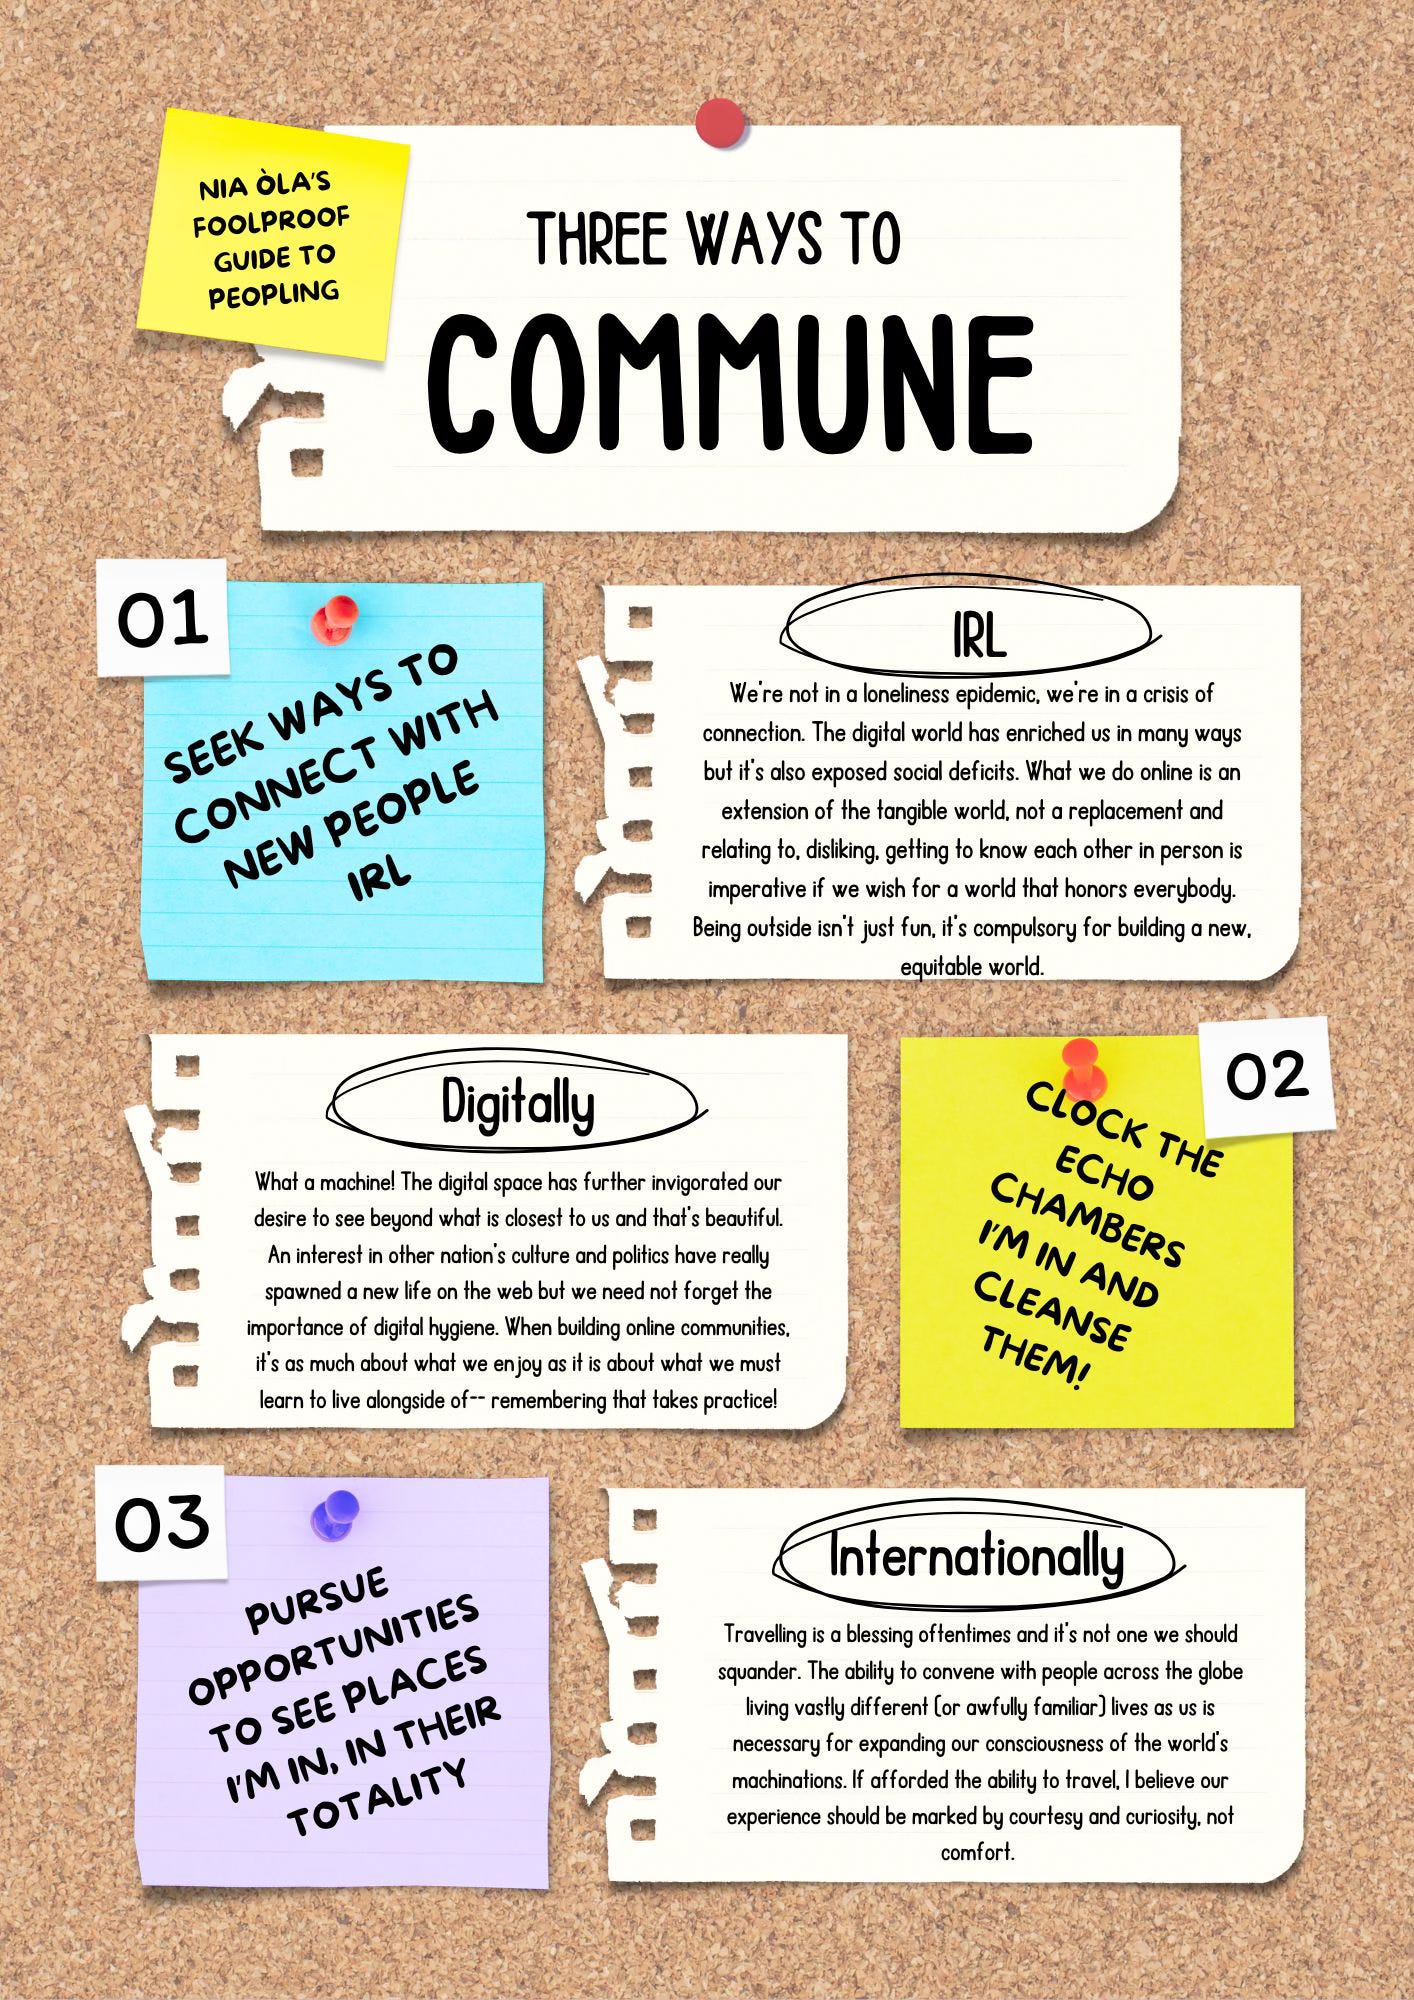 NIA ÒLA'S
FOOLPROOF
GUIDE TO
PEOPLING
THREE WAYS TO
COMMUNE
01
SEEK WAYS TO
CONNECT WITH
NEW PEOPLE
IRL
IRL
We're not in a loneliness epidemic, we're in a crisis of
connection. The digital world has enriched us in many ways
but it's also exposed social deficits. What we do online is an
extension of the tangible world, not a replacement and
relating to, disliking, getting to know each other in person is
imperative if we wish for a world that honors everybody.
Being outside isn't just fun, it's compulsory for building a new,
equitable world.
Digitally
What a machine! The digital space has further invigorated our
desire to see beyond what is closest to us and that's beautiful.
An interest in other nation's culture and politics have really
spawned a new life on the web but we need not forget the
importance of digital hygiene. When building online communities,
it's as much about what we enjoy as it is about what we must
learn to live alongside of-- remembering that takes practice!
02
CLOCK THE
ECHO
CHAMBERS
I'M IN AND
CLEANSE
THEM!
03
PURSUE
OPPORTUNITIES
TO SEE PLACES
I'M IN, IN THEIR
TOTALITY
Internationally
Travelling is a blessing oftentimes and it's not one we should
squander. The ability to convene with people across the globe
living vastly different (or awfully familiar) lives as us is
necessary for expanding our consciousness of the world's
machinations. If afforded the ability to travel, I believe our
experience should be marked by courtesy and curiosity, not
comfort.